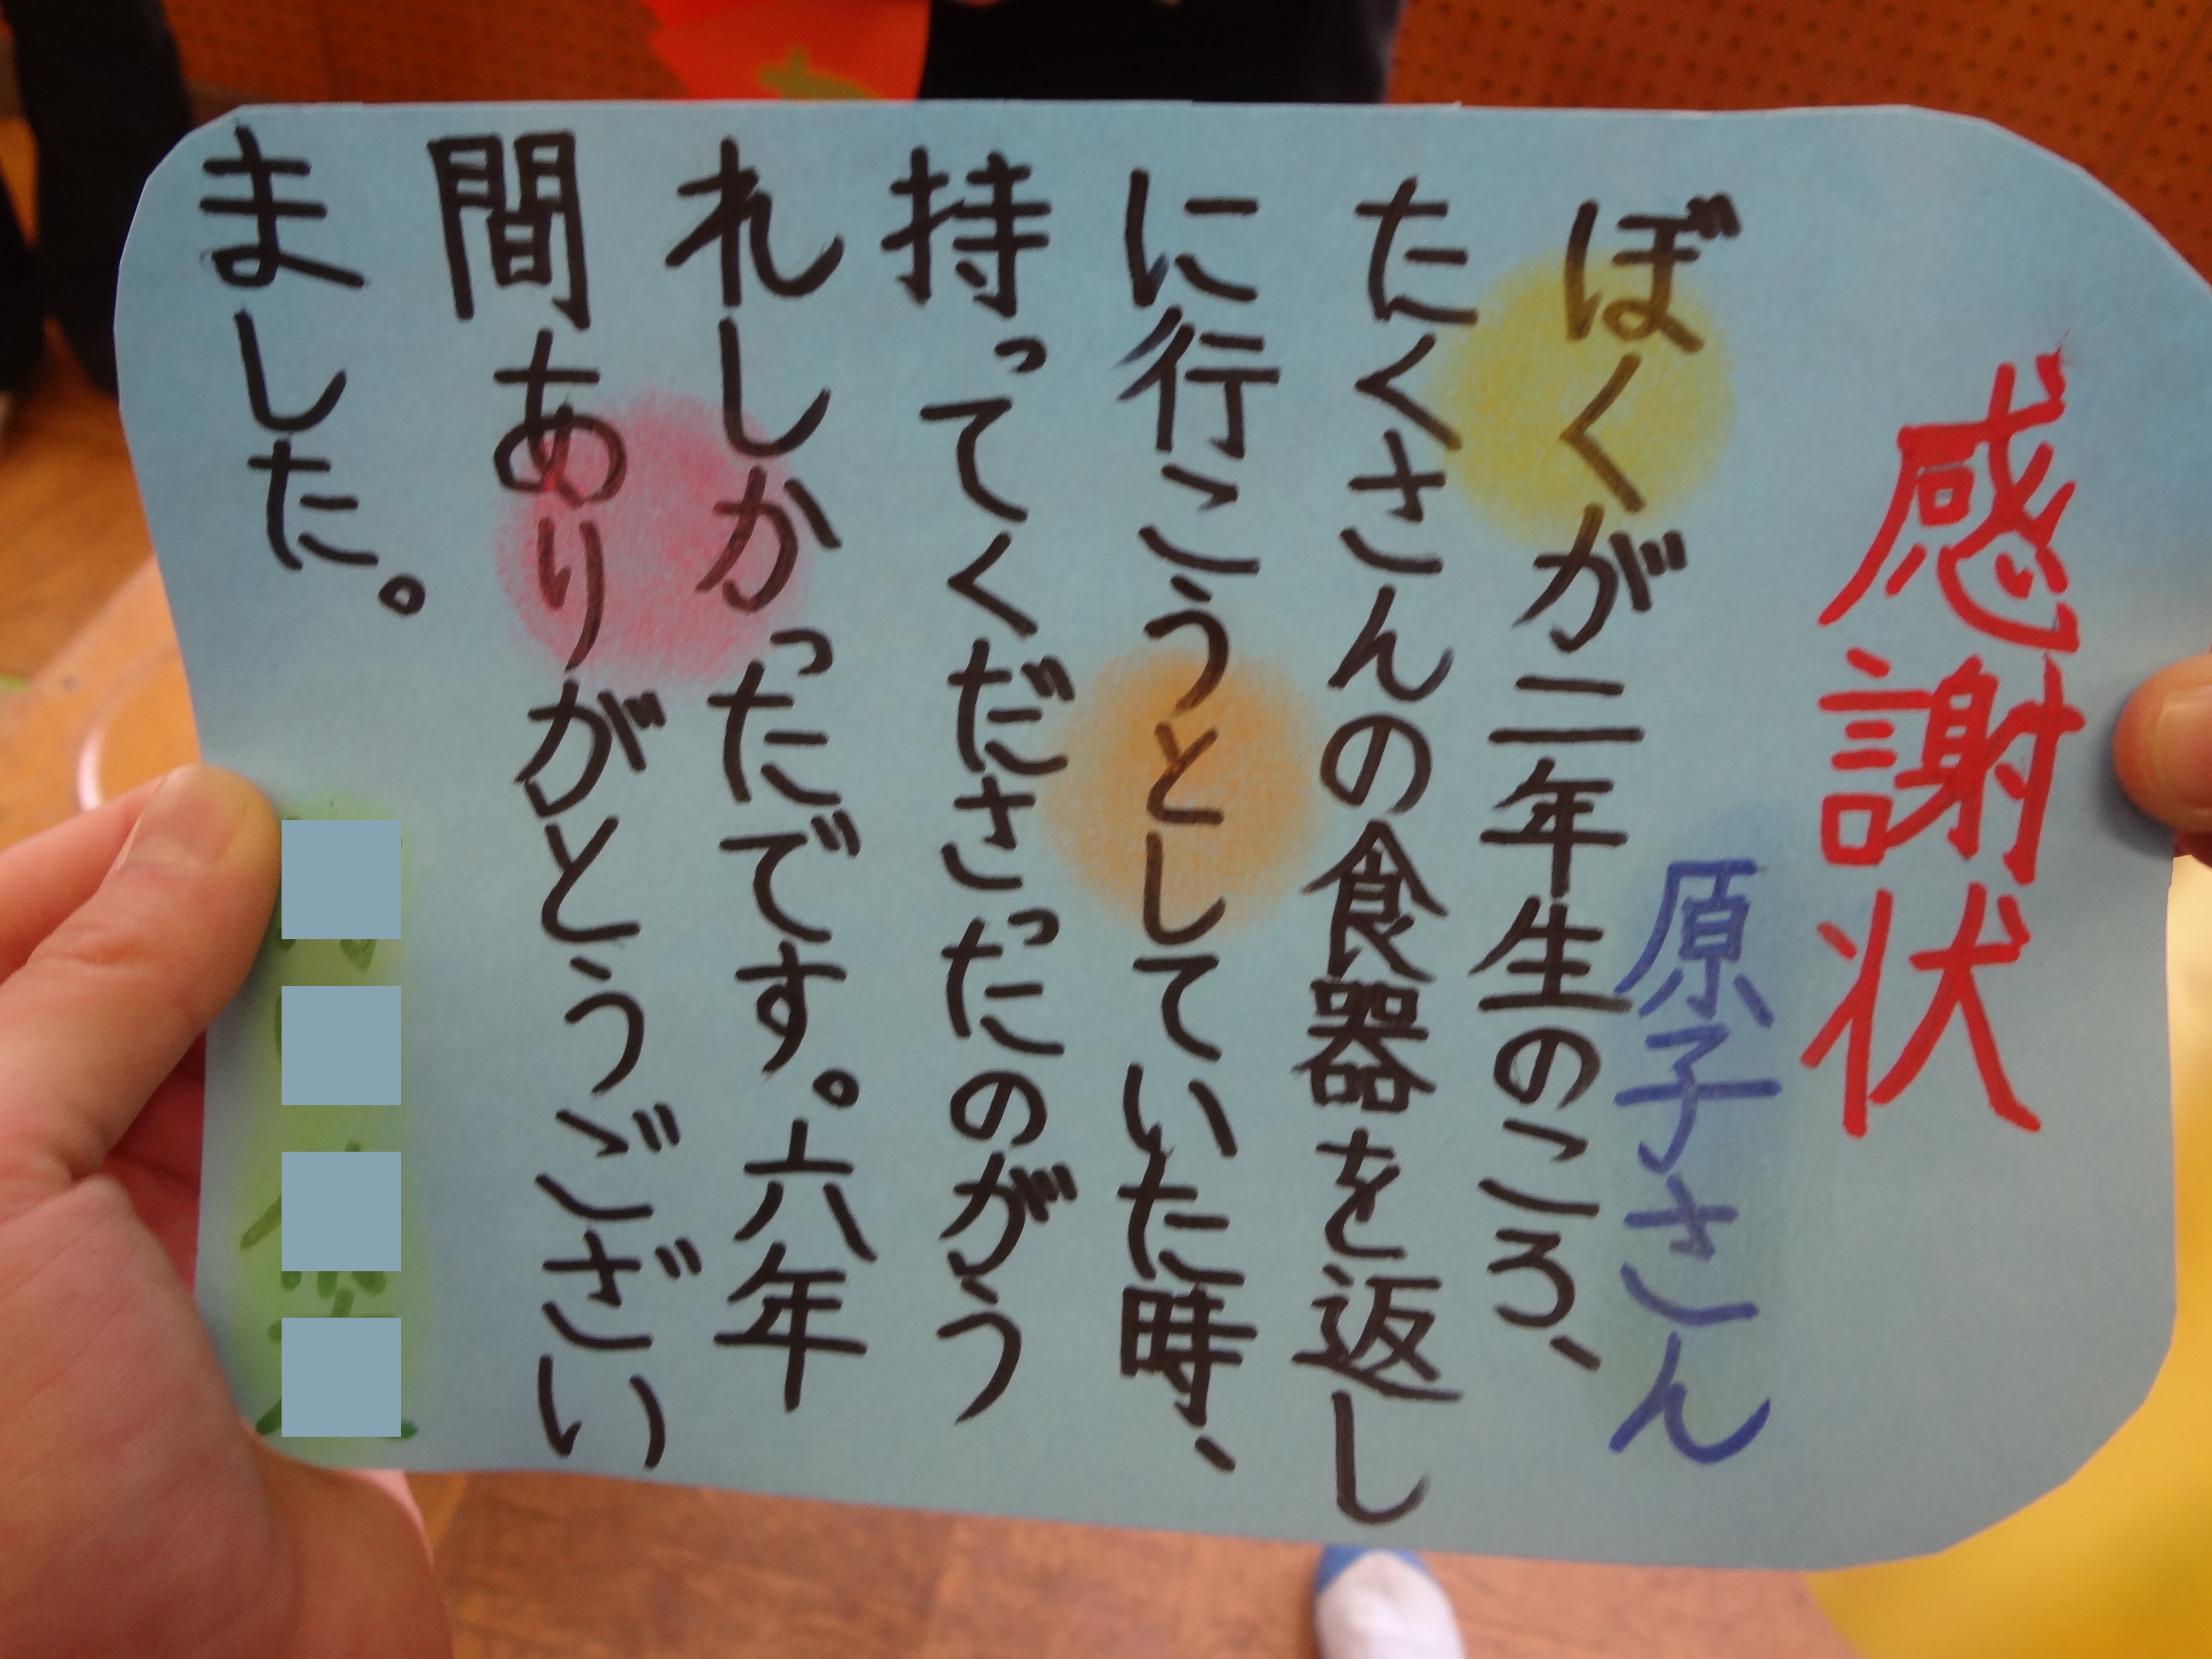 感謝状
原子さん
ぼくが二年生のころ、
たくさんの食器を返し
に行こうとしていた時、
持ってくださったのがう
れしかったです。六年
間ありがとうござい
ました。